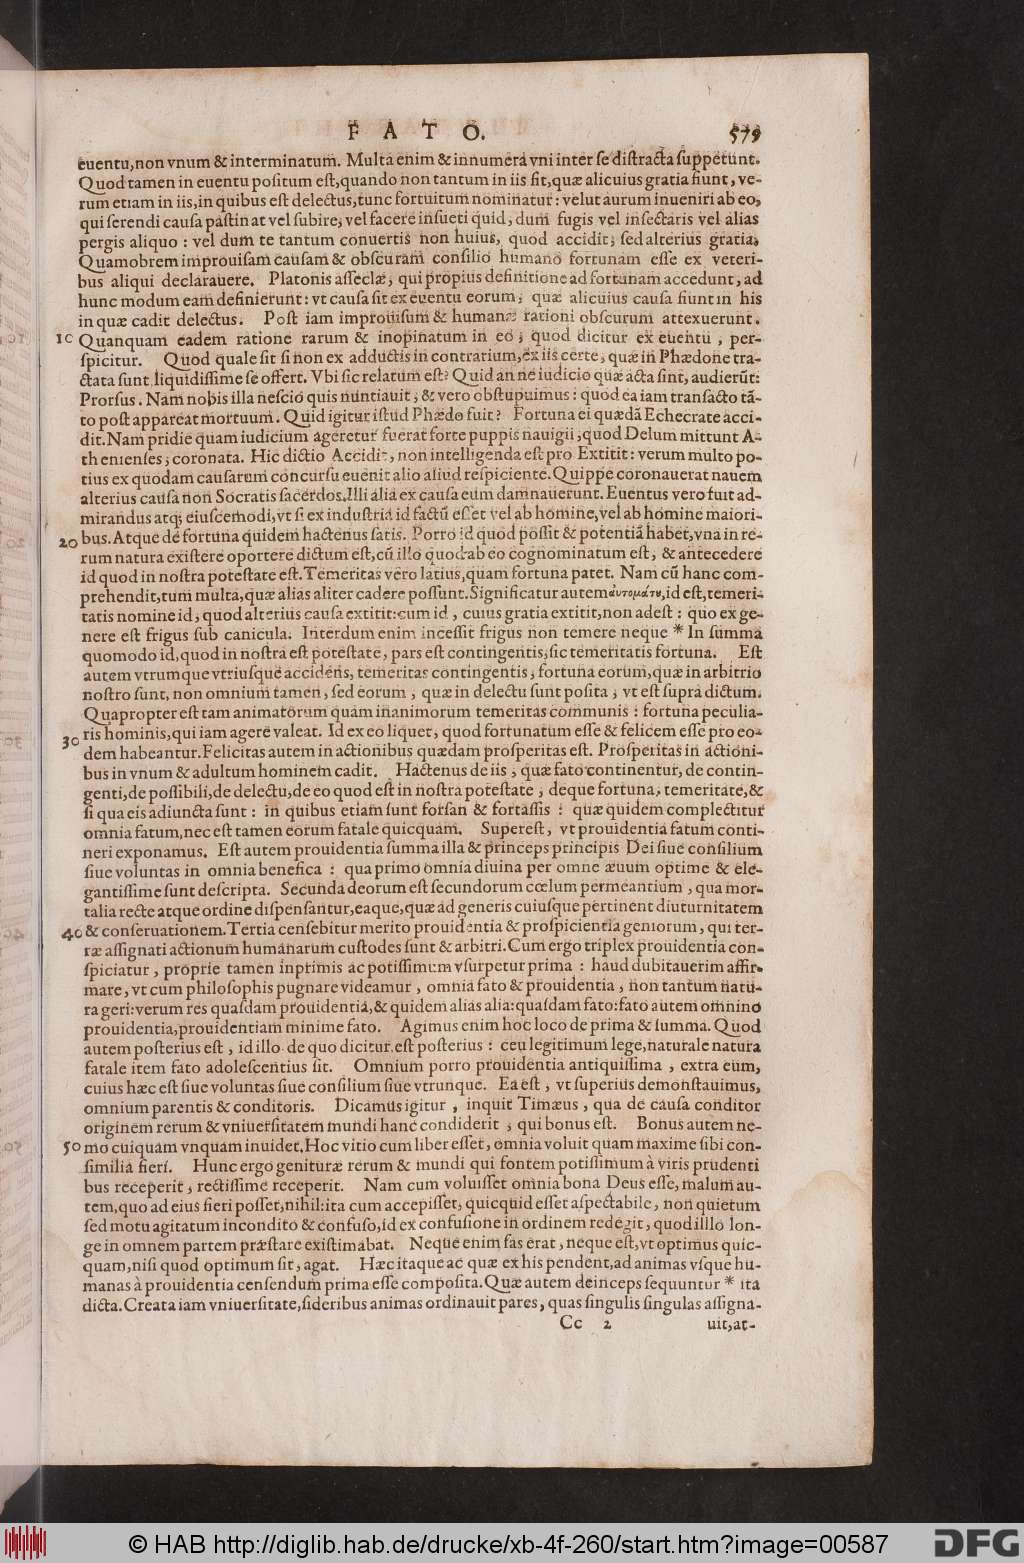 F A T O. 579
euentu, non vnum & interminatum. Multa enim & innumera vni inter se distracta suppetunt.
Quod tamen in euentu positum est, quando non tantum in iis fit, quæ alicuius gratia fiunt, ve-
rum etiam in iis, in quibus est delectus, tunc fortuitum nominatur: velut aurum inueniri ab eo,
qui serendi causa pastinat vel subire, vel facere insueti quid, dum fugis vel insectaris vel alias
pergis aliquo: vel dum te tantum conuertis non huius, quod accidit; sed alterius gratia.
Quamobrem improuisam causam & obscuram consilio humano fortunam esse ex veteri-
bus aliqui declarauere. Platonis asseclæ, qui propius definitione ad fortunam accedunt, ad
hunc modum eam definierunt: vt causa sit ex euentu eorum, quæ alicuius causa fiunt in his
in quæ cadit delectus. Post iam improuisum & humanæ rationi obscurum attexuerunt.
10 Quanquam eadem ratione rarum & inopinatum in eo, quod dicitur ex euentu, per-
spicitur. Quod quale sit si non ex adductis in contrarium, ex iis certe, quæ in Phædone tra-
ctata sunt liquidissime se offert. Vbi sic relatum est? Quid an ne iudicio quæ acta sint, audierūt:
Prorsus. Nam nobis illa nescio quis nuntiauit, & vero obstupuimus: quod ea iam transacto tā-
to post appareat mortuum. Quid igitur istud Phædo fuit? Fortuna ei quædā Echecrate acci-
dit. Nam pridie quam iudicium ageretur fuerat forte puppis nauigii, quod Delum mittunt A-
thenienses, coronata. Hic dictio Accidit, non intelligenda est pro Extitit: verum multo po-
tius ex quodam causarum concursu euenit alio aliud respiciente. Quippe coronauerat nauem
alterius causa non Socratis sacerdos. Illi alia ex causa eum damnauerunt. Euentus vero fuit ad-
mirandus atq; eiuscemodi, vt si ex industria id factū esset vel ab homine, vel ab homine maiori-
20 bus. Atque de fortuna quidem hactenus satis. Porro id quod possit & potentiā habet, vna in re-
rum natura existere oportere dictum est, cū illo quod ab eo cognominatum est, & antecedere
id quod in nostra potestate est. Temeritas vero latius, quam fortuna patet. Nam cū hanc com-
prehendit, tum multa, quæ alias aliter cadere possunt. Significatur autem ἀυτομάτῳ, id est, temeri-
tatis nomine id, quod alterius causa extitit: cum id, cuius gratia extitit, non adest: quo ex ge-
nere est frigus sub canicula. Interdum enim incessit frigus non temere neque * In summa
quomodo id, quod in nostra est potestate, pars est contingentis, sic temeritatis fortuna. Est
autem vtrumque vtriusque accidens, temeritas contingentis, fortuna eorum, quæ in arbitrio
nostro sunt, non omnium tamen, sed eorum, quæ in delectu sunt posita, vt est supra dictum.
Quapropter est tam animatorum quam inanimorum temeritas communis: fortuna peculia-
30 ris hominis, qui iam agere valeat. Id ex eo liquet, quod fortunatum esse & felicem esse pro eo-
dem habeantur. Felicitas autem in actionibus quædam prosperitas est. Prosperitas in actioni-
bus in vnum & adultum hominem cadit. Hactenus de iis, quæ fato continentur, de contin-
genti, de possibili, de delectu, de eo quod est in nostra potestate, deque fortuna, temeritate, &
si qua eis adiuncta sunt: in quibus etiam sunt forsan & fortassis: quæ quidem complectitur
omnia fatum, nec est tamen eorum fatale quicquam. Superest, vt prouidentia fatum conti-
neri exponamus. Est autem prouidentia summa illa & princeps principis Dei siue consilium
siue voluntas in omnia benefica: qua primo omnia diuina per omne æuum optime & ele-
gantissime sunt descripta. Secunda deorum est secundorum cœlum permeantium, qua mor-
talia recte atque ordine dispensantur, eaque, quæ ad generis cuiusque pertinent diuturnitatem
40 & conseruationem. Tertia censebitur merito prouidentia & prospicientia geniorum, qui ter-
ræ assignati actionum humanarum custodes sunt & arbitri. Cum ergo triplex prouidentia con-
spiciatur, proprie tamen inprimis ac potissimum vsurpetur prima: haud dubitauerim affir-
mare, vt cum philosophis pugnare videamur, omnia fato & prouidentia, non tantum natu-
ra geri: verum res quasdam prouidentia, & quidem alias alia: quasdam fato: fato autem omnino
prouidentia, prouidentiam minime fato. Agimus enim hoc loco de prima & summa. Quod
autem posterius est, id illo de quo dicitur. est posterius: ceu legitimum lege, naturale natura
fatale item fato adolescentius sit. Omnium porro prouidentia antiquissima, extra eum,
cuius hæc est siue voluntas siue consilium siue vtrunque. Ea est, vt superius demonstauimus,
omnium parentis & conditoris. Dicamus igitur, inquit Timæus, qua de causa conditor
originem rerum & vniuersitatem mundi hanc condiderit, qui bonus est. Bonus autem ne-
50 mo cuiquam vnquam inuidet. Hoc vitio cum liber esset, omnia voluit quam maxime sibi con-
similia fieri. Hunc ergo genituræ rerum & mundi qui fontem potissimum à viris prudenti
bus receperit, rectissime receperit. Nam cum voluisset omnia bona Deus esse, malum au-
tem, quo ad eius fieri posset, nihil: ita cum accepisset, quicquid esset aspectabile, non quietum
sed motu agitatum incondito & confuso, id ex confusione in ordinem redegit, quod illlo lon-
ge in omnem partem præstare existimabat. Neque enim fas erat, neque est, vt optimus quic-
quam, nisi quod optimum sit, agat. Hæc itaque ac quæ ex his pendent, ad animas vsque hu-
manas à prouidentia censendum prima esse composita. Quæ autem deinceps sequuntur * ita
dicta. Creata iam vniuersitate, sideribus animas ordinauit pares, quas singulis singulas assigna-
Cc 2 uit, at-
© HAB http://diglib.hab.de/drucke/xb-4f-260/start.htm?image=00587
DFG